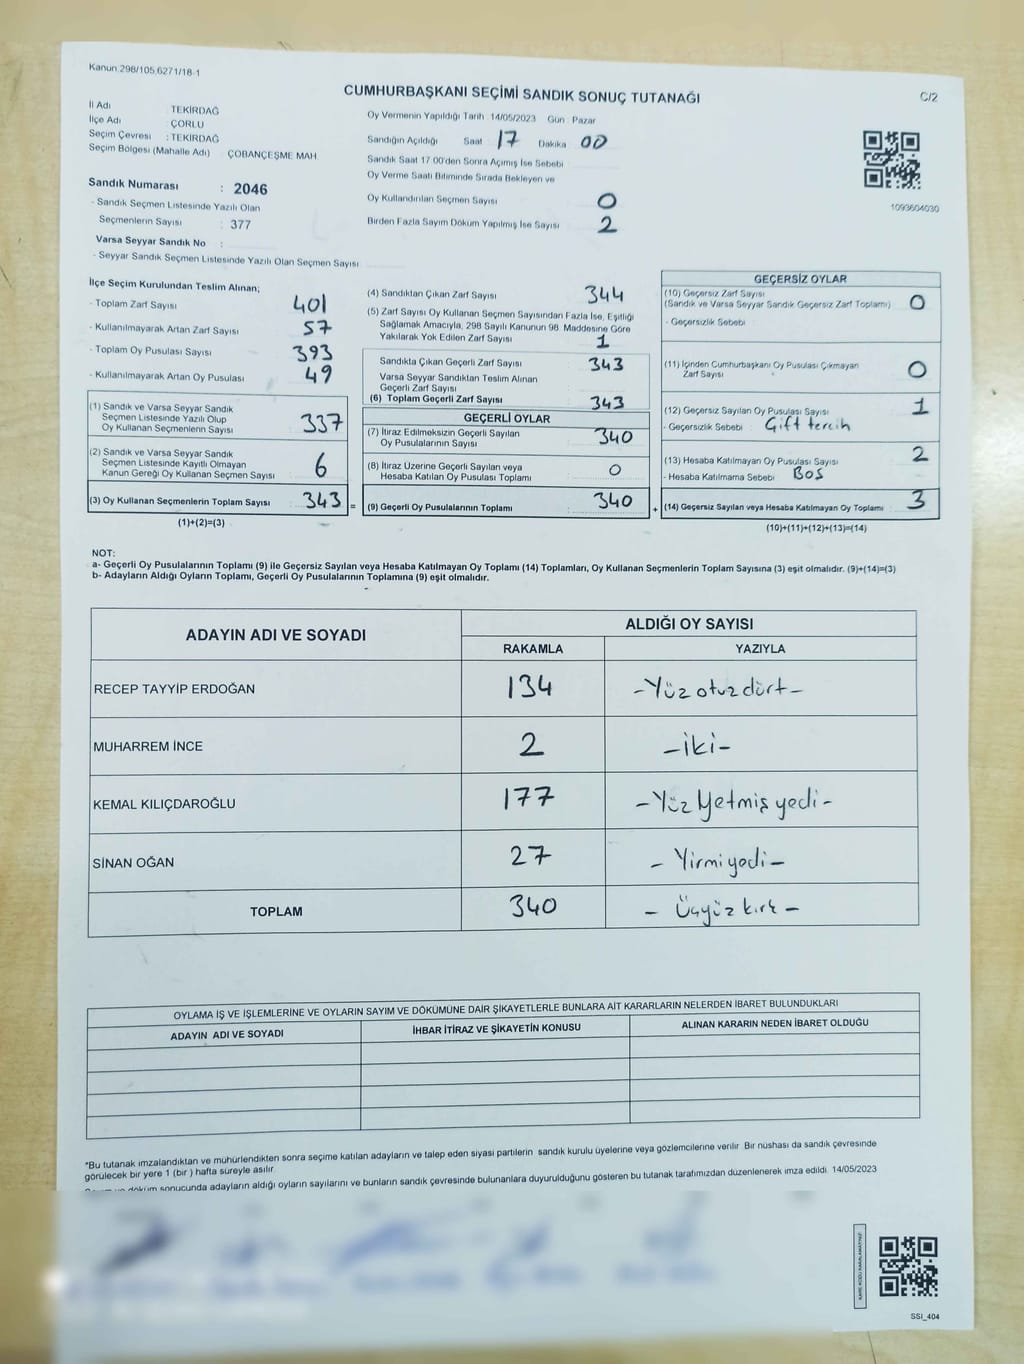 Kanun 298/105,6271/18-1
CUMHURBAŞKANI SEÇİMİ SANDIK SONUÇ TUTANAĞI
C/2
İl Adı TEKİRDAĞ
İlçe Adı ÇORLU
Seçim Çevresi : TEKİRDAĞ
Seçim Bölgesi (Mahalle Adı) ÇOBANÇEŞME MAH
Sandık Numarası : 2046
- Sandık Seçmen Listesinde Yazılı Olan
Seçmenlerin Sayısı : 377
Varsa Seyyar Sandık No :
- Seyyar Sandık Seçmen Listesinde Yazılı Olan Seçmen Sayısı
Oy Vermenin Yapıldığı Tarih 14/05/2023 Gün : Pazar
Sandığın Açıldığı Saat 17 Dakika 00
Sandık Saat 17:00'den Sonra Açımış İse Sebebi
Oy Verme Saati Bitiminde Sırada Bekleyen ve
Oy Kullandırılan Seçmen Sayısı 0
Birden Fazla Sayım Döküm Yapılmış İse Sayısı 2
1093604030
İlçe Seçim Kurulundan Teslim Alınan;
- Toplam Zarf Sayısı 401
- Kullanılmayarak Artan Zarf Sayısı 57
- Toplam Oy Pusulası Sayısı 393
- Kullanılmayarak Artan Oy Pusulası 49
(1) Sandık ve Varsa Seyyar Sandık
Seçmen Listesinde Yazılı Olup
Oy Kullanan Seçmenlerin Sayısı 337
(2) Sandık ve Varsa Seyyar Sandık
Seçmen Listesinde Kayıtlı Olmayan
Kanun Gereği Oy Kullanan Seçmen Sayısı 6
(3) Oy Kullanan Seçmenlerin Toplam Sayısı 343 =
(1)+(2)=(3)
(4) Sandıktan Çıkan Zarf Sayısı 344
(5) Zarf Sayısı Oy Kullanan Seçmen Sayısından Fazla İse, Eşitliği
Sağlamak Amacıyla, 298 Sayılı Kanunun 98. Maddesine Göre
Yakılarak Yok Edilen Zarf Sayısı 1
Sandıkta Çıkan Geçerli Zarf Sayısı 343
Varsa Seyyar Sandıktan Teslim Alınan
Geçerli Zarf Sayısı
(6) Toplam Geçerli Zarf Sayısı 343
GEÇERLİ OYLAR
(7) İtiraz Edilmeksizin Geçerli Sayılan
Oy Pusulalarının Sayısı 340
(8) İtiraz Üzerine Geçerli Sayılan veya
Hesaba Katılan Oy Pusulası Toplamı 0
(9) Geçerli Oy Pusulalarının Toplamı 340 +
GEÇERSİZ OYLAR
(10) Geçersiz Zarf Sayısı
(Sandık ve Varsa Seyyar Sandık Geçersiz Zarf Toplamı) 0
- Geçersizlik Sebebi
(11) İçinden Cumhurbaşkanı Oy Pusulası Çıkmayan
Zarf Sayısı 0
(12) Geçersiz Sayılan Oy Pusulası Sayısı 1
- Geçersizlik Sebebi : Çift tercih
(13) Hesaba Katılmayan Oy Pusulası Sayısı 2
- Hesaba Katılmama Sebebi : BOŞ
(14) Geçersiz Sayılan veya Hesaba Katılmayan Oy Toplamı 3
(10)+(11)+(12)+(13)=(14)
NOT:
a- Geçerli Oy Pusulalarının Toplamı (9) ile Geçersiz Sayılan veya Hesaba Katılmayan Oy Toplamı (14) Toplamları, Oy Kullanan Seçmenlerin Toplam Sayısına (3) eşit olmalıdır. (9)+(14)=(3)
b- Adayların Aldığı Oyların Toplamı, Geçerli Oy Pusulalarının Toplamına (9) eşit olmalıdır.
ADAYIN ADI VE SOYADI ALDIĞI OY SAYISI
RAKAMLA YAZIYLA
RECEP TAYYİP ERDOĞAN 134 -Yüz otuz dört-
MUHARREM İNCE 2 -iki-
KEMAL KILIÇDAROĞLU 177 -Yüz Yetmiş yedi-
SİNAN OĞAN 27 - Yirmi yedi -
TOPLAM 340 - Üçyüz kırk -
OYLAMA İŞ VE İŞLEMLERİNE VE OYLARIN SAYIM VE DÖKÜMÜNE DAİR ŞİKAYETLERLE BUNLARA AİT KARARLARIN NELERDEN İBARET BULUNDUKLARI
ADAYIN ADI VE SOYADI İHBAR İTİRAZ VE ŞİKAYETİN KONUSU ALINAN KARARIN NEDEN İBARET OLDUĞU
*Bu tutanak imzalandıktan ve mühürlendikten sonra seçime katılan adayların ve talep eden siyasi partilerin sandık kurulu üyelerine veya gözlemcilerine verilir. Bir nüshası da sandık çevresinde
görülecek bir yere 1 (bir ) hafta süreyle asılır.
döküm sonucunda adayların aldığı oyların sayılarını ve bunların sandık çevresinde bulunanlara duyurulduğunu gösteren bu tutanak tarafımızdan düzenlenerek imza edildi. 14/05/2023
KARE KODU KARALAMAYINIZ!
SSI_404